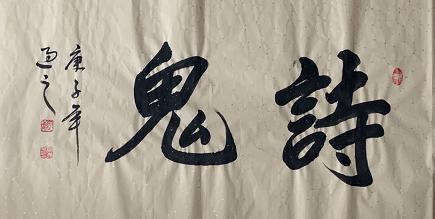 詩鬼
庚子年